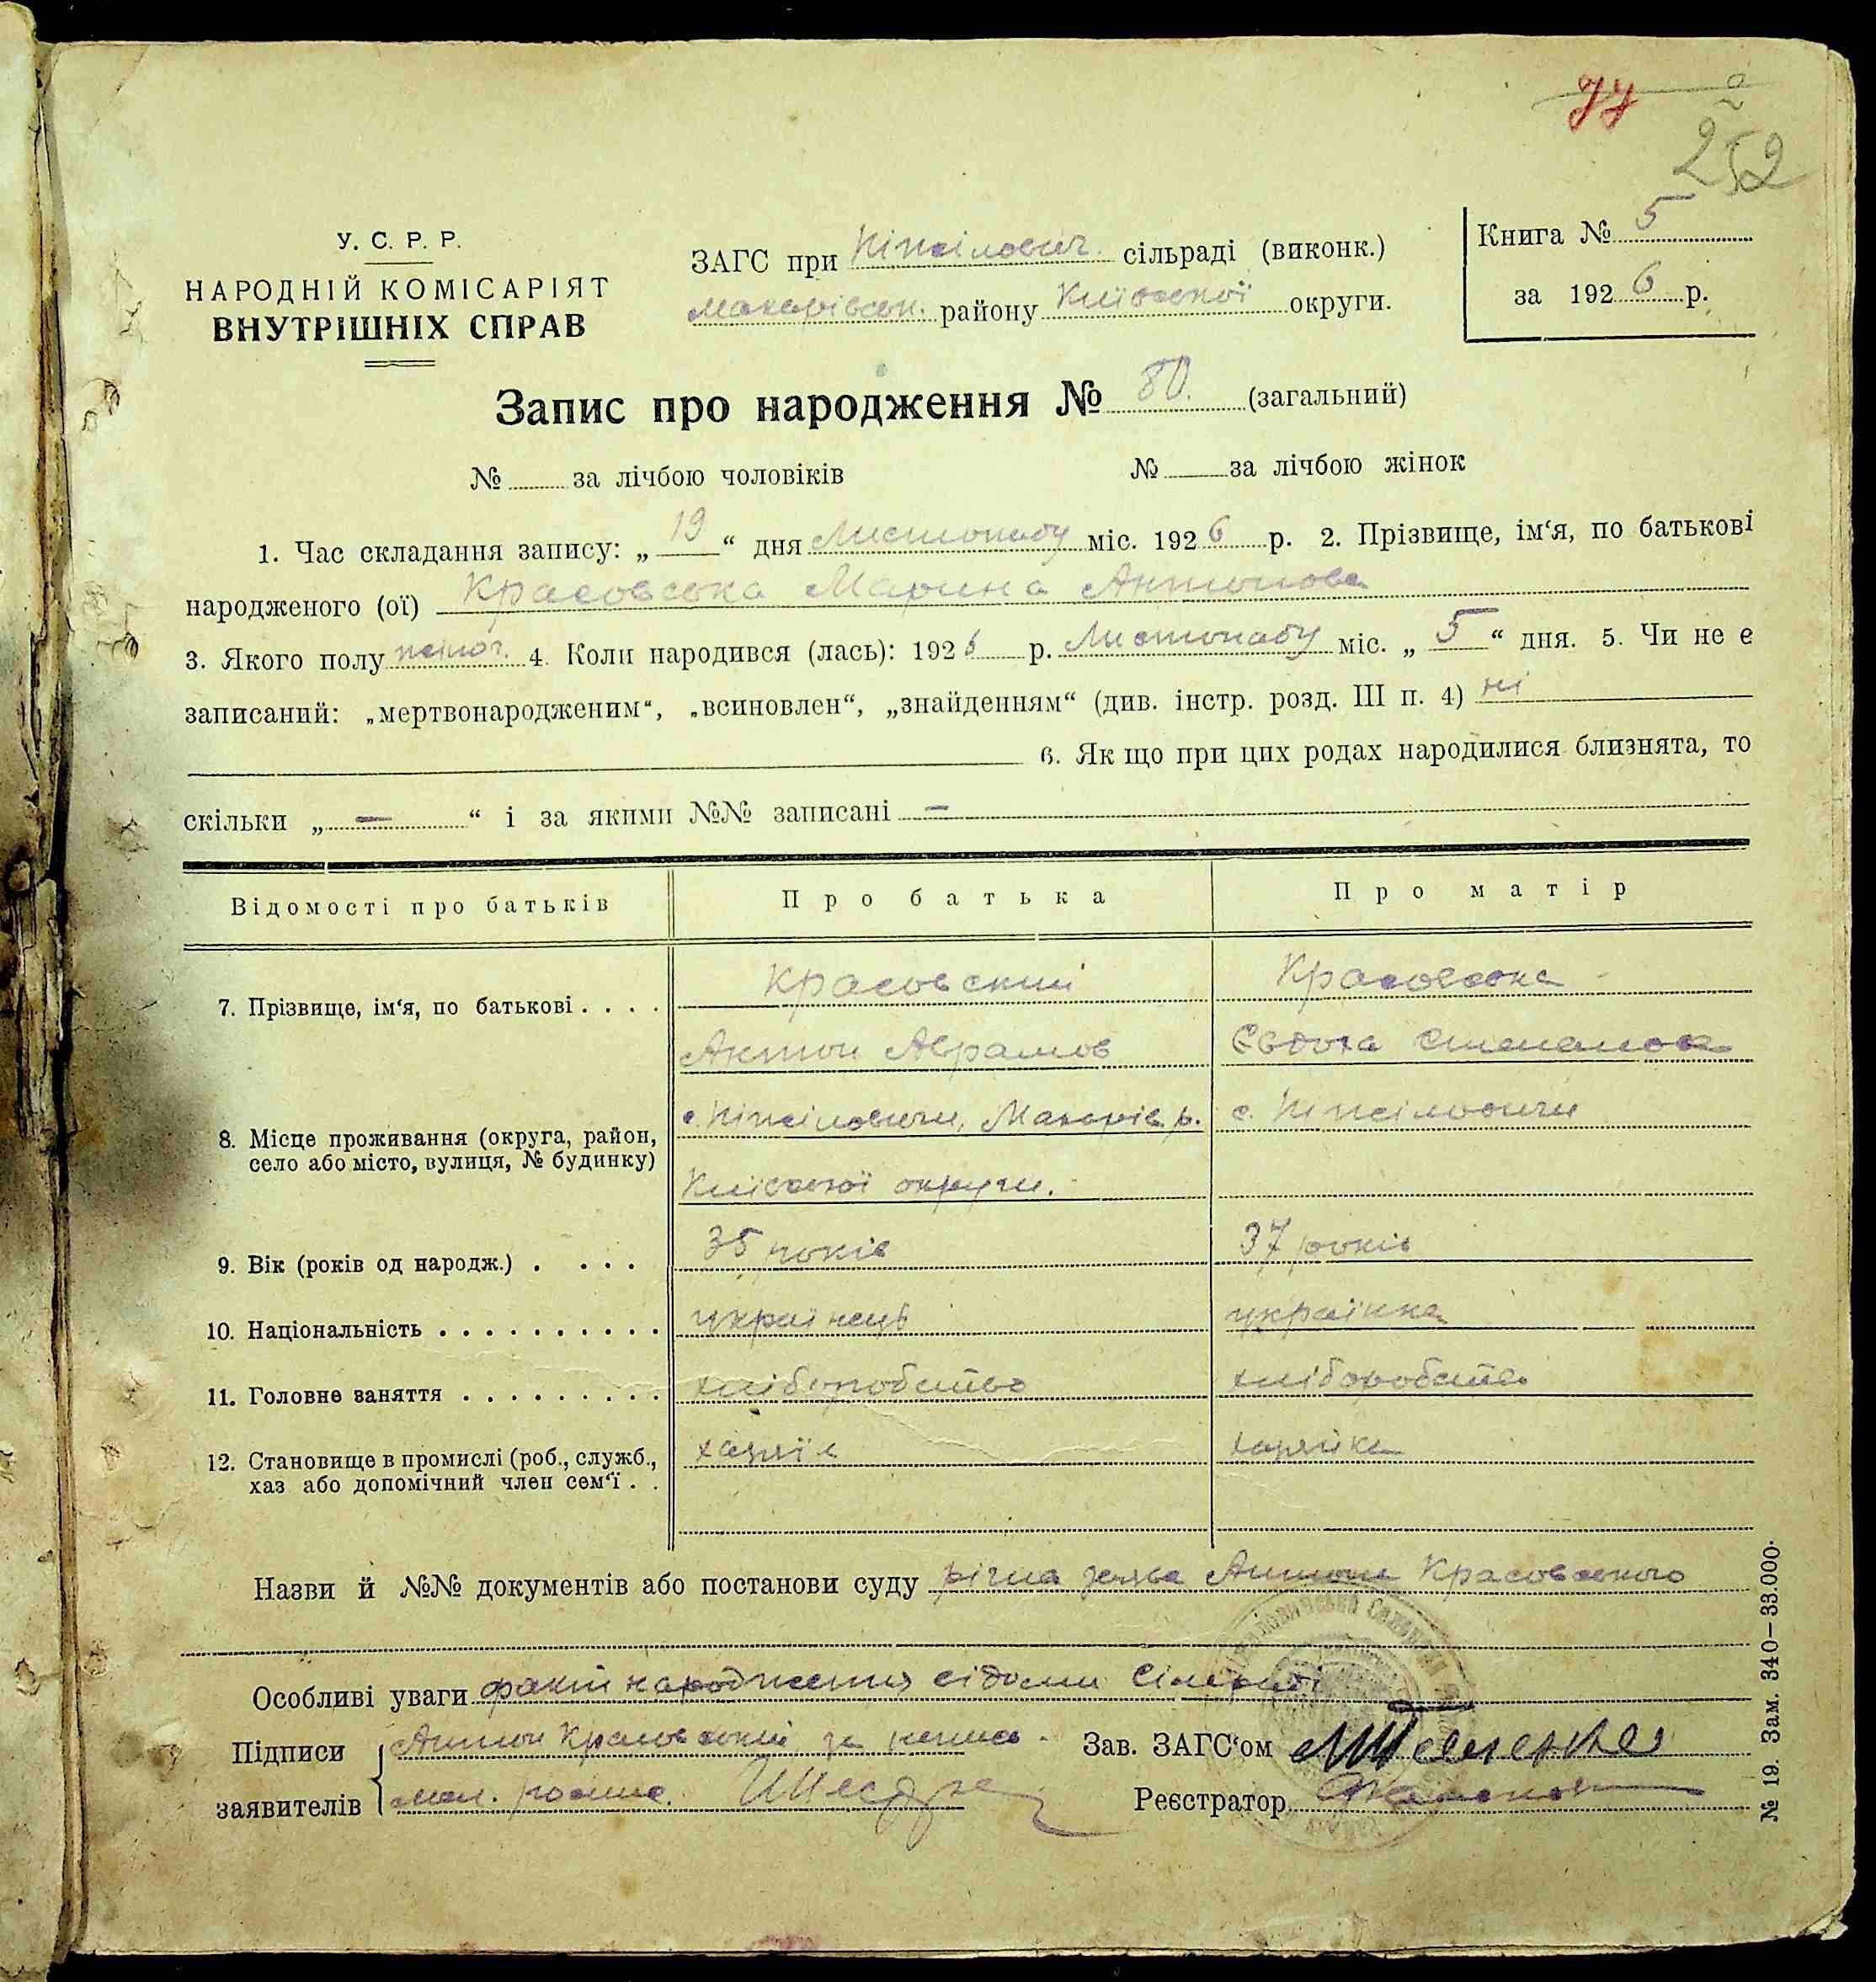 77
252
У. С. Р. Р.
НАРОДНІЙ КОМІСАРІЯТ
ВНУТРІШНІХ СПРАВ
ЗАГС при Ніжиловиг. сільраді (виконк.)
Макарівськ. району Київської округи.
Книга № 5
за 1926 р.
Запис про народження № 80. (загальний)
№ за лічбою чоловіків № за лічбою жінок
1. Час складання запису: „19“ дня Листопаду міс. 1926 р. 2. Прізвище, ім‘я, по батькові
народженого (ої) Красовська Марина Антонова
3. Якого полу жіноч. 4. Коли народився (лась): 1926 р. Листопаду міс. „5“ дня. 5. Чи не є
записаний: „мертвонародженим“, „всиновлен“, „знайденням“ (див. інстр. розд. III п. 4) ні
6. Як що при цих родах народилися близнята, то
скільки „ — “ і за якими №№ записані —
Відомості про батьків Про батька Про матір
7. Прізвище, ім‘я, по батькові . . . . Красовський Красовська
Антон Аврамов Євдоха Степанова
8. Місце проживання (округа, район, село або місто, вулиця, № будинку) с. Ніжиловичи, Макарів. р. с. Ніжиловичи
Київської округи.
9. Вік (років од народж.) . . . . 35 років 37 років
10. Національність . . . . . . . . . . українець українка
11. Головне заняття . . . . . . . . . хліборобство хліборобство
12. Становище в промислі (роб., служб., хаз або допомічний член сем‘ї . . хазяїн хазяйка
Назви й №№ документів або постанови суду заява Антона Красовського
Особливі уваги факт народження відомий Сільраді
Підписи Антон Красовський за Зав. ЗАГС‘ом
заявителів Реєстратор
№ 19. Зам. 340—33.000.